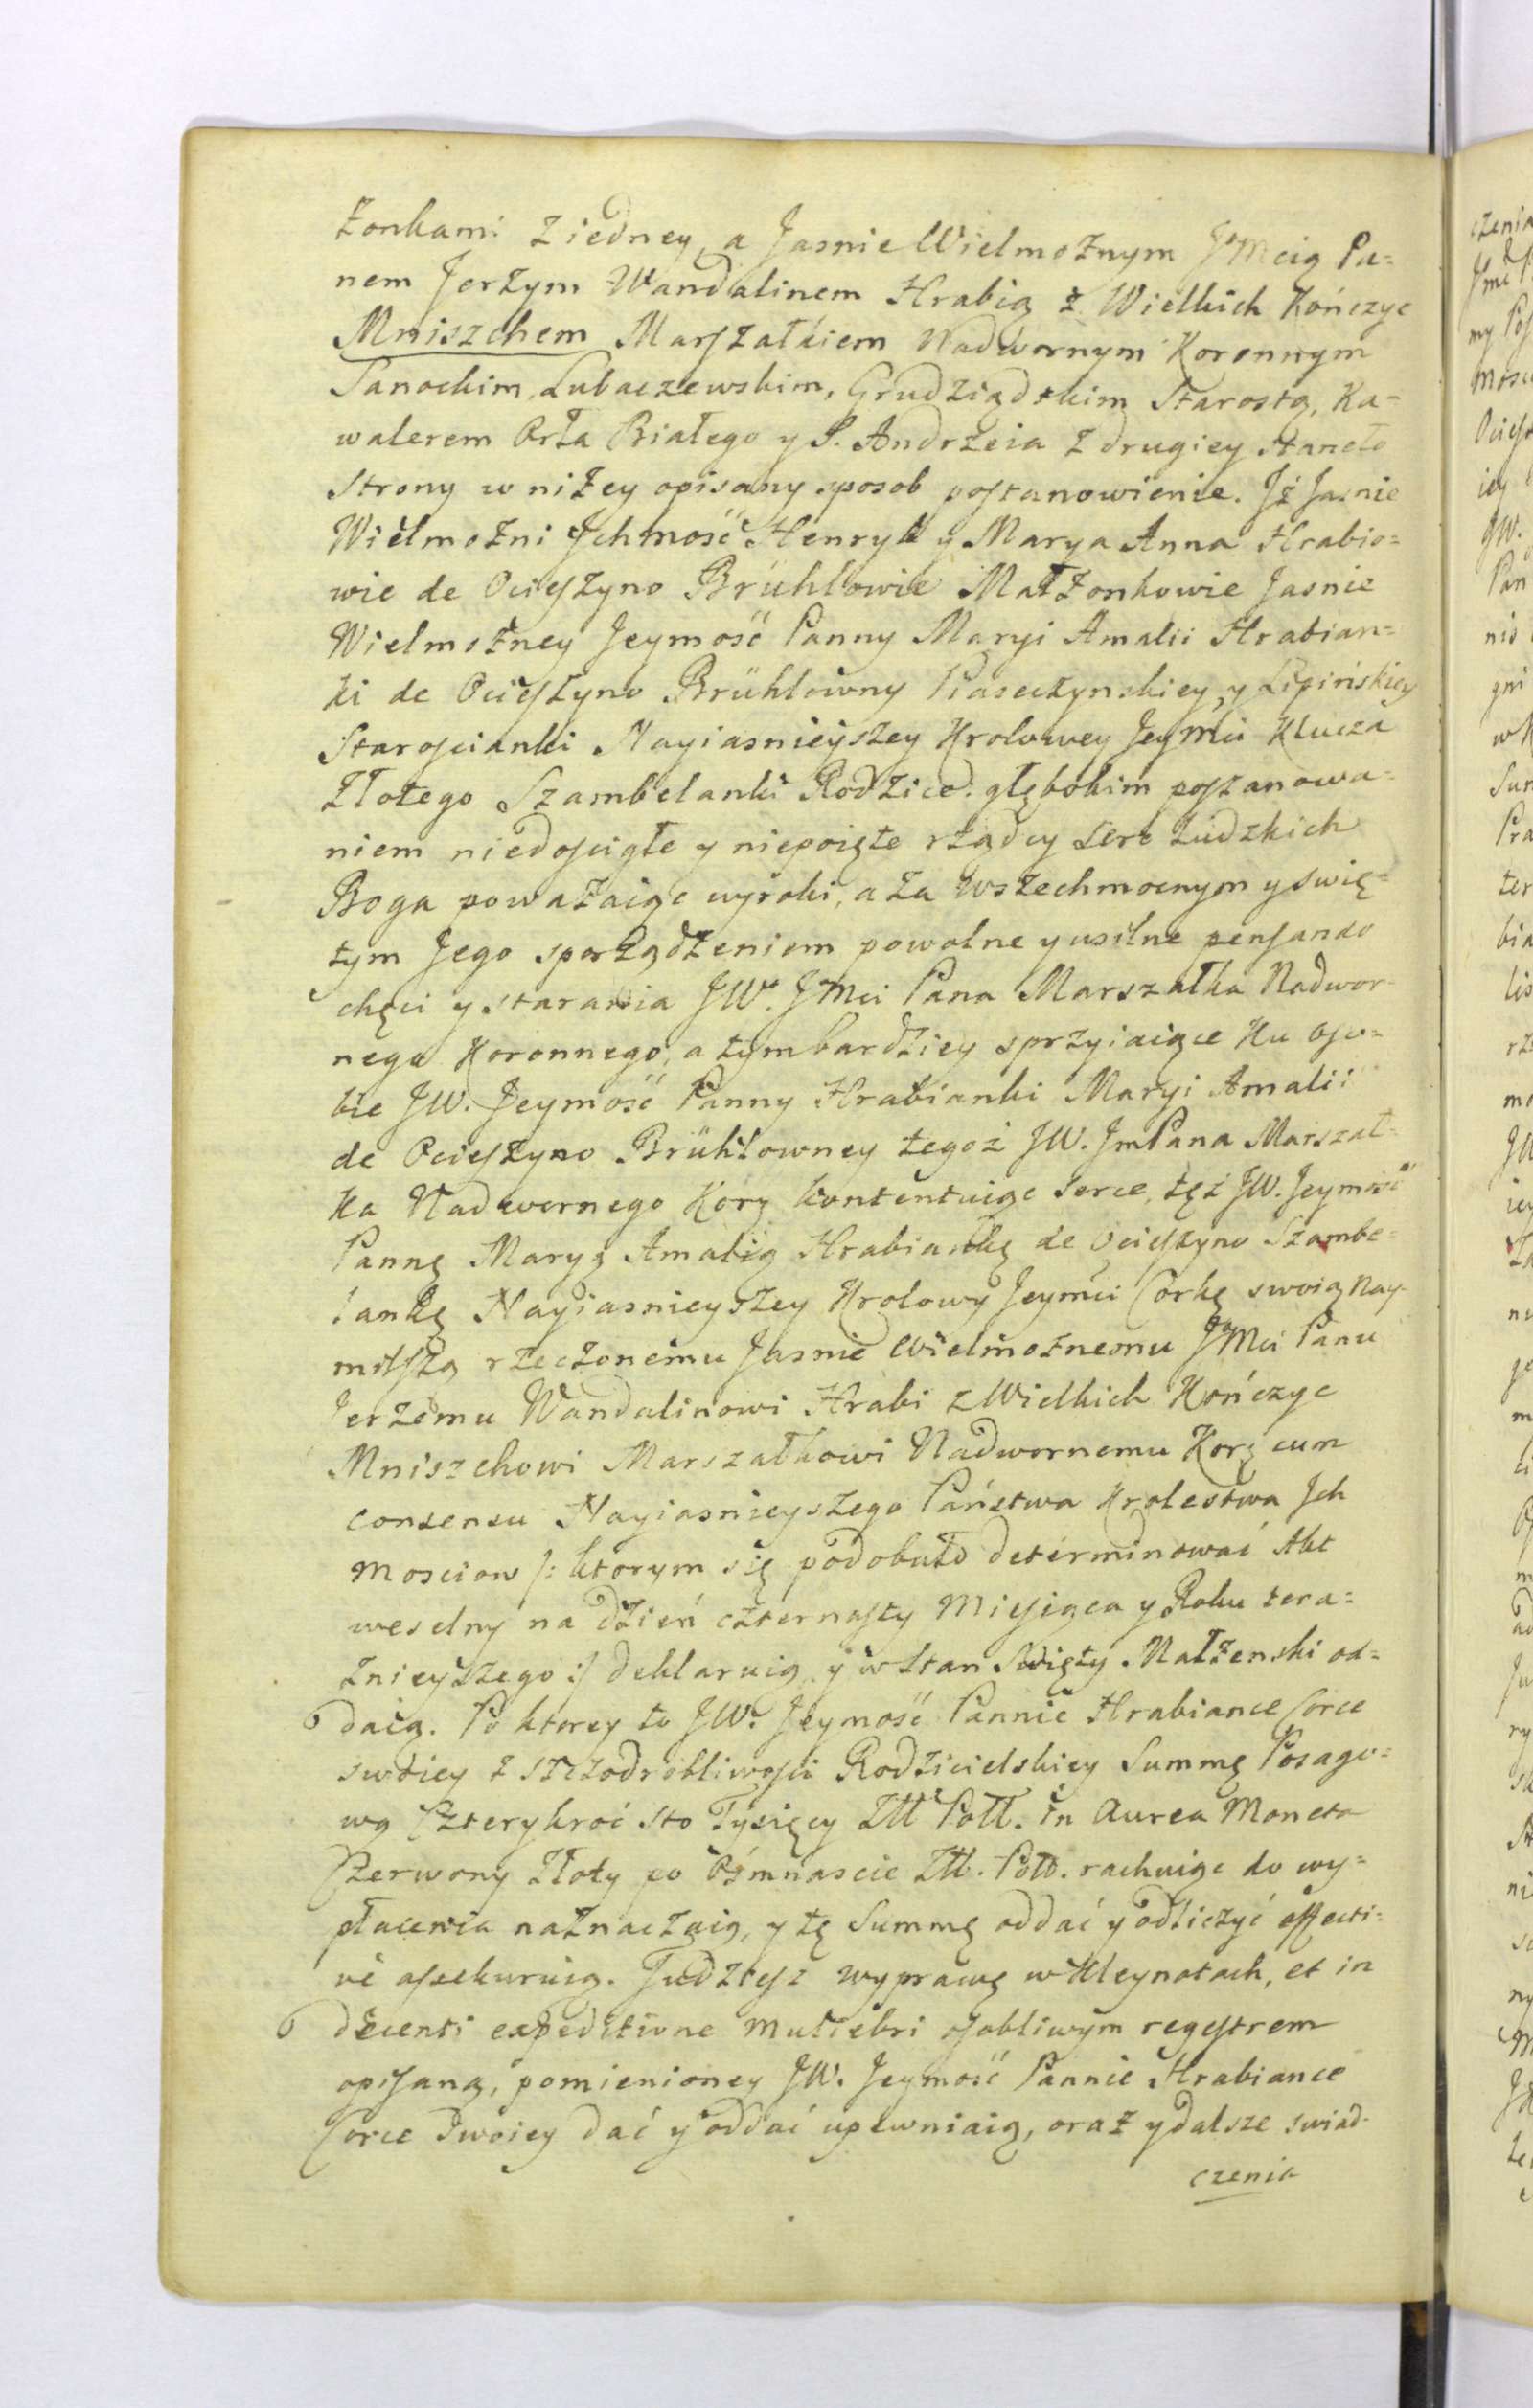 żonkami z iedney, a Jasnie Wielmożnym JoMcią Pa=
nem Jerzym Wandalinem Hrabią z Wielkich Kończyc
Mniszchem Marszałkiem Nadwornym Koronnym
Sanockim, Lubaczewskim, Grudziądskim Starostą, Ka=
walerem Orła Białego y S. Andrzeia z drugiey staneło
strony w niżey opisany sposob postanowienie. Jż Jasnie
Wielmożni Jchmość Henryk y Marya Anna Hrabio=
wie de Ocieszyno Brühlowie Małżonkowie Jasnie
Wielmożney Jeymość Panny Maryi Amalii Hrabian=
ki de Ocieszyno Brühlowny Piaseczynskiey, y Lipińskiey
Starościanki Nayiasnieyszey Krolowey Jeymci Klucza
Złotego Szambelanki Rodzice. głębokim poszanowa=
niem niedościgłe y niepoięte rządcy serc ludzkich
Boga poważaiąc wyroki, a za wszechmocnym y swię=
tym Jego sporządzeniem powolne y usilne pensando
chęci y starania JW. JMci Pana Marszałka Nadwor=
nego Koronnego, a tym bardziey sprzyiaiące ku oso=
bie JW. Jeymość Panny Hrabianki Maryi Amalii
de Ocieszyno Brühlowney tegoż JW. JmPana Marszał=
ka Nadwornego Korą kontentuiąc serce, tęż JW. Jeymość
Pannę Maryą Amalią Hrabiankę de Ocieszyno Szambe=
lankę Nayiasnieyszey Krolowy Jeymci Corkę swoią Nay=
milszą rzeczonemu Jasnie Wielmożnemu JoMci Panu
Jerzemu Wandalinowi Hrabi z Wielkich Kończyc
Mniszchowi Marszałkowi Nadwornemu Korą cum
consensu Nayiasnieyszego Państwa Krolestwa Jch
Mosciow /: ktorym się podobało determinować Akt
weselny na dzień czternasty Miesiąca y Roku tera=
znieyszego :/ deklaruią y w Stan Swięty Małżenski od=
daią. Po ktorey to JW. Jeymość Pannie Hrabiance Corce
swoiey z szczodrobliwości Rodzicielskiey Summę Posago=
wą Czterykroć Sto Tysięcy Złł Poll. in Aurea Moneta
Czerwony Złoty po Ośmnascie Złł. Poll. rachuiąc do wy=
płacenia naznaczaią, y tę Summę oddać y odliczyć effecti=
ve assekuruią. Tudziesz wyprawę w Kleynotach, et in
decenti expeditione muliebri osobliwym regestrem
opisaną, pomienioney JW. Jeymość Pannie Hrabiance
Corce Swoiey dać y oddać upewniaią, oraz y dalsze swiad=
czenia